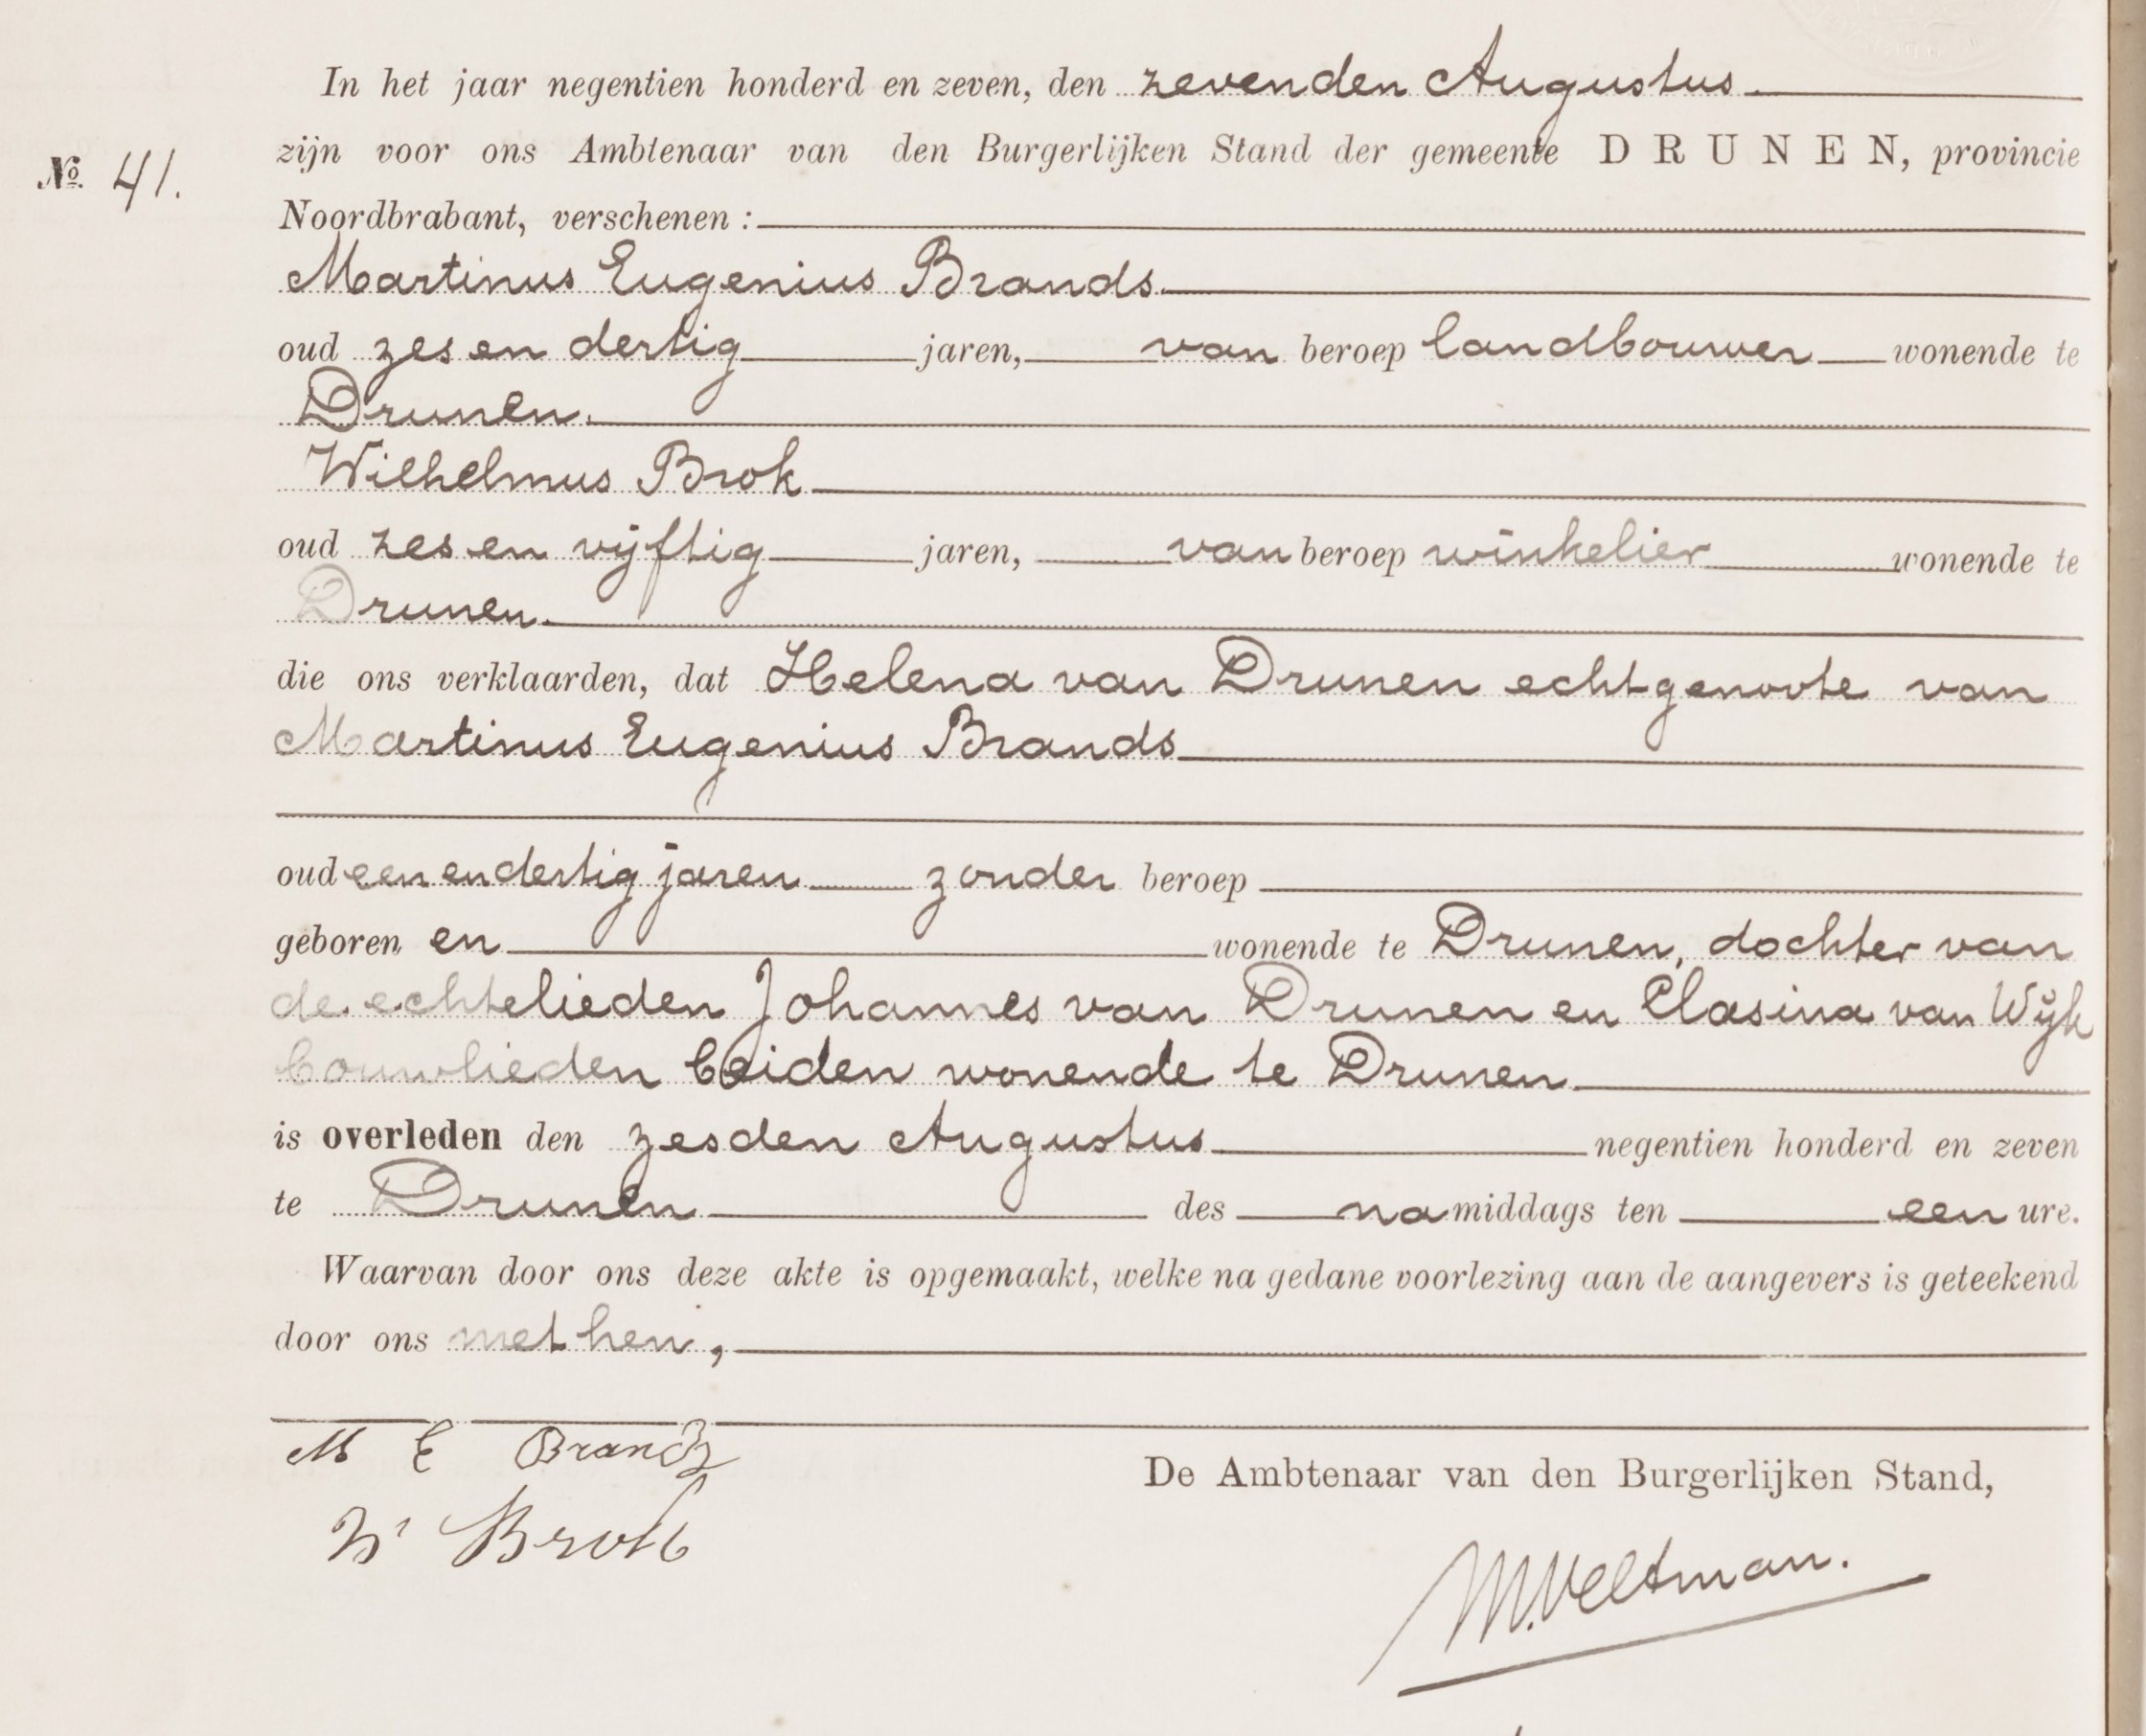 In het jaar negentien honderd en zeven, den zevenden Augustus
zijn voor ons Ambtenaar van den Burgerlijken Stand der gemeente DRUNEN, provincie
No. 41.
Noordbrabant, verschenen :
Martinus Eugenius Brands
oud zes en dertig jaren, van beroep landbouwer wonende te
Drunen.
Wilhelmus Brok
oud zes en vijftig jaren, van beroep winkelier wonende te
Drunen.
die ons verklaarden, dat Helena van Drunen echtgenoote van
Martinus Eugenius Brands
oud een en dertig jaren zonder beroep
geboren en wonende te Drunen, dochter van
de echtelieden Johannes van Drunen en Clasina van Wijk
bouwlieden beiden wonende te Drunen
is overleden den zesden Augustus negentien honderd en zeven
te Drunen des namiddags ten een ure.
Waarvan door ons deze akte is opgemaakt, welke na gedane voorlezing aan de aangevers is geteekend
door ons met hen,
M E Brands
De Ambtenaar van den Burgerlijken Stand,
W Brok
M. Veltman.